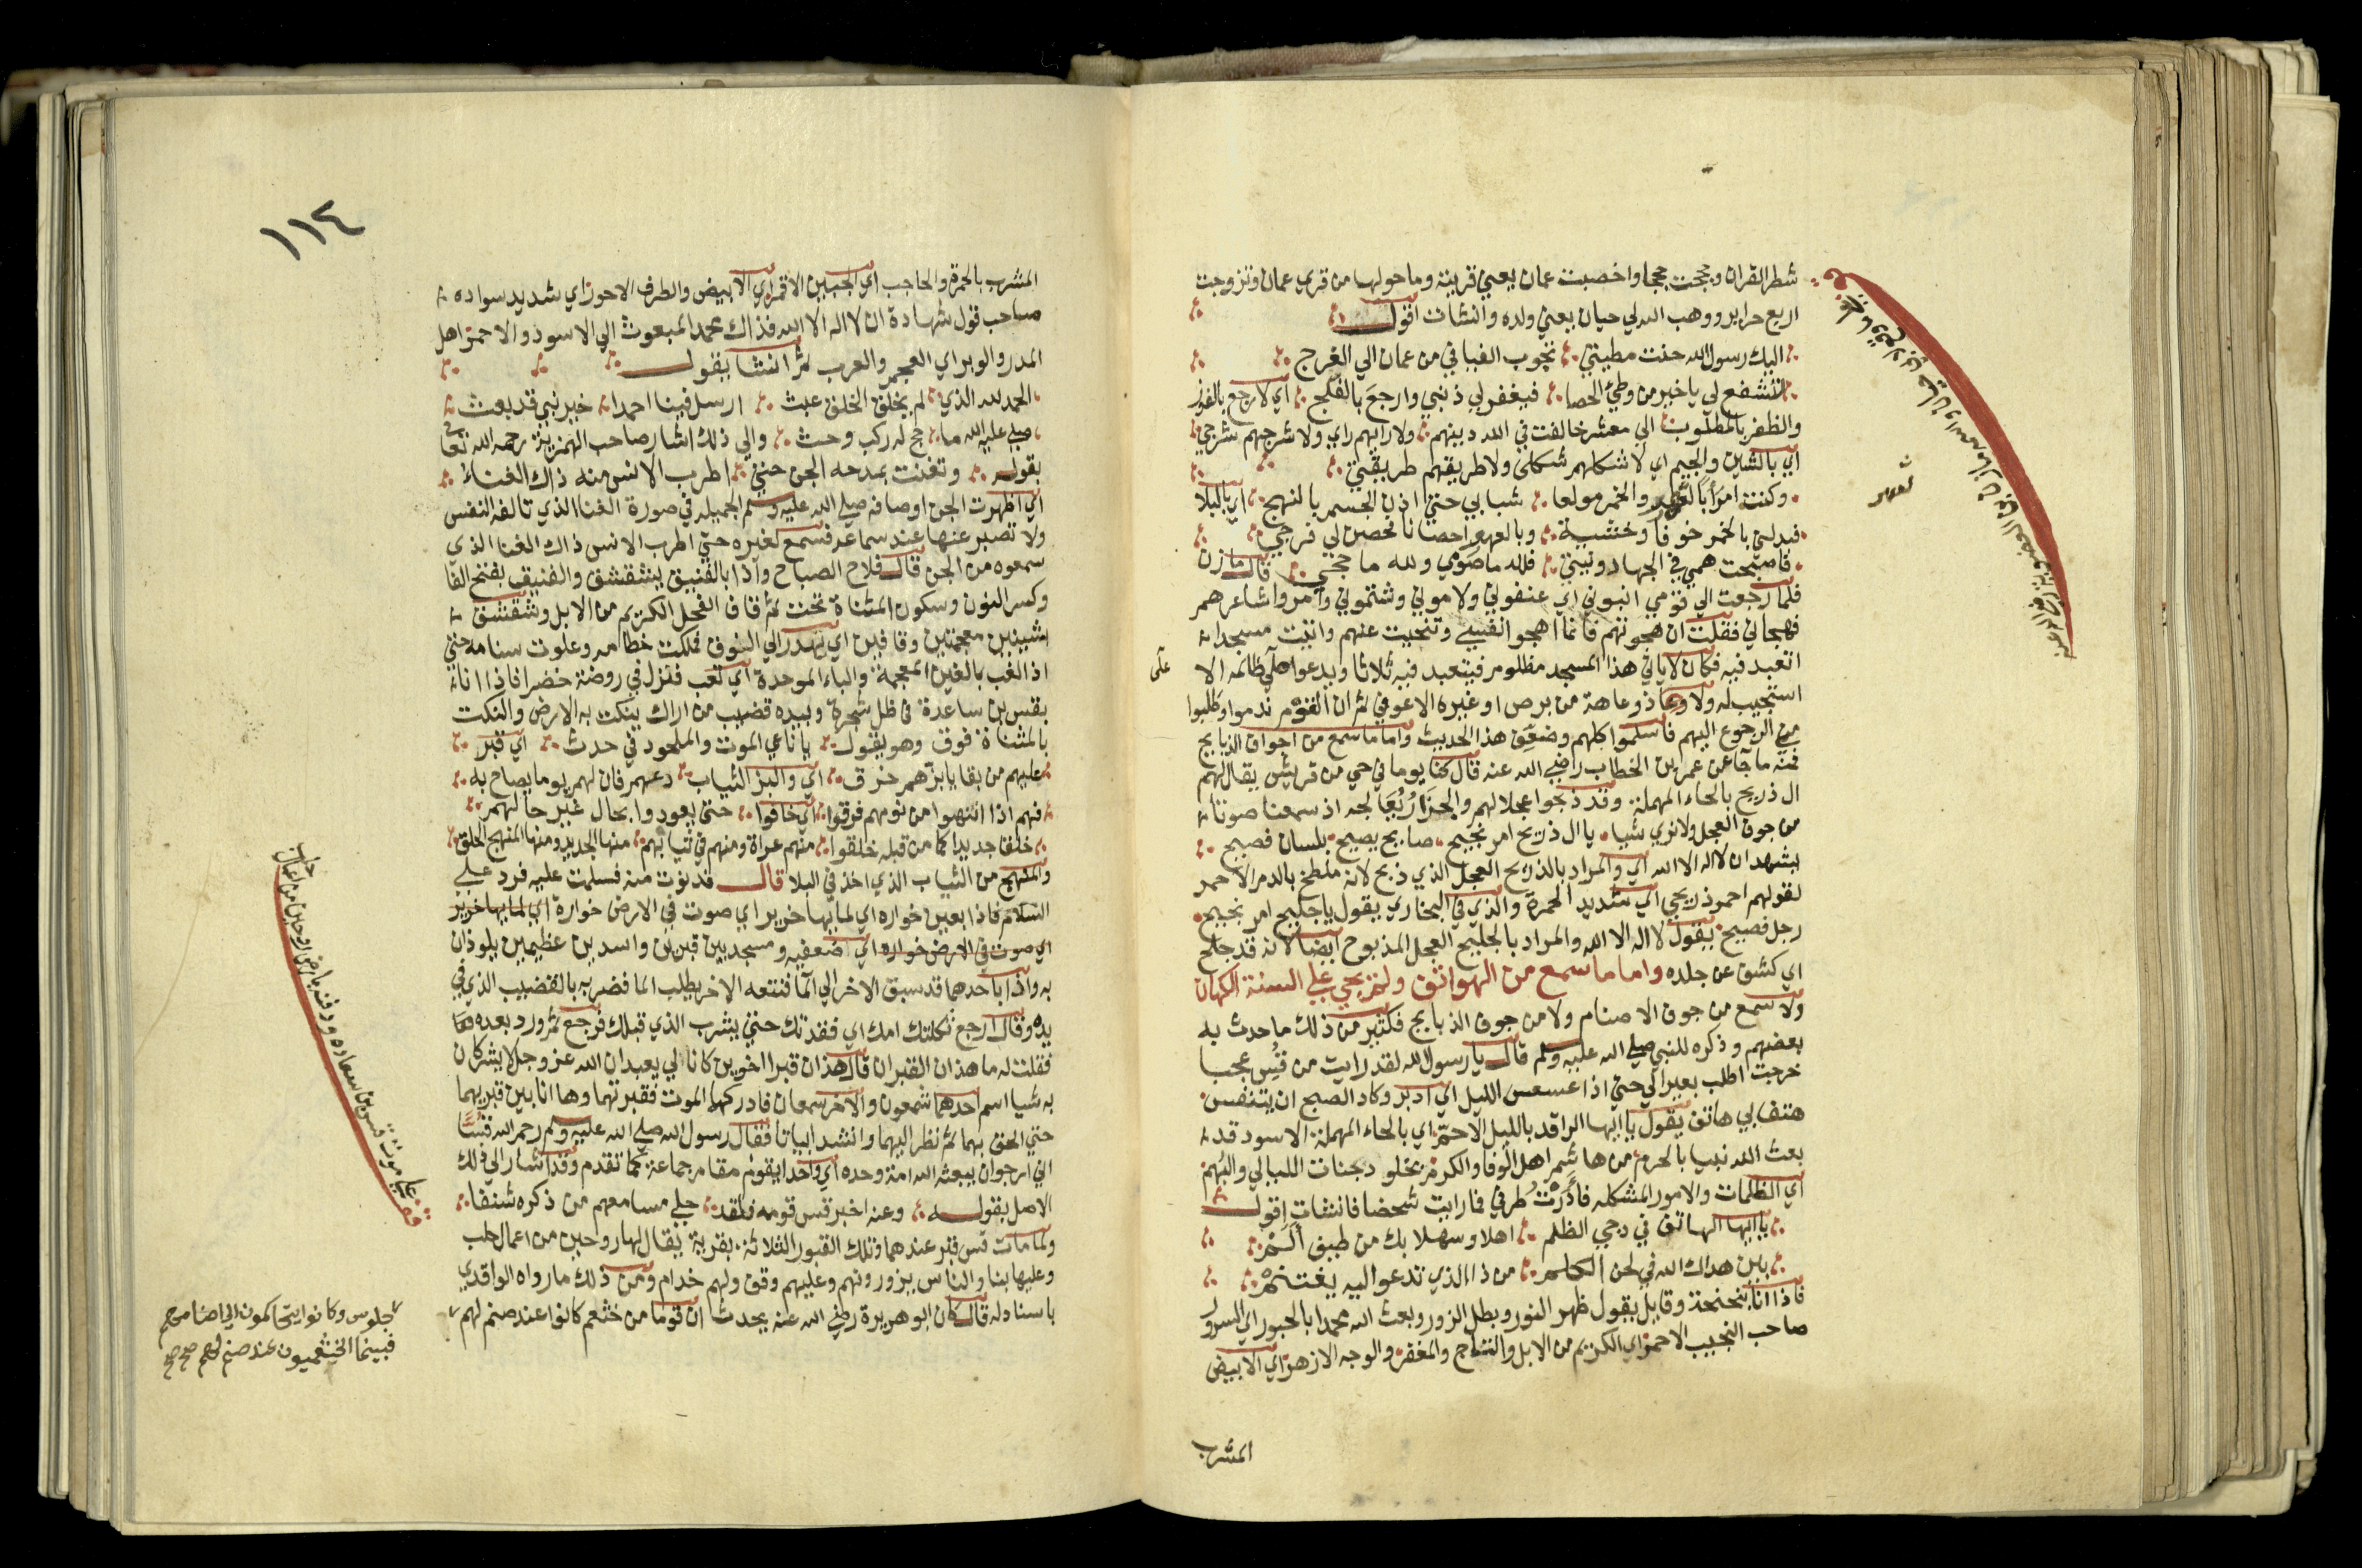 شطر القران وحججت حججا واخصبت عمان يعني قريته وما حولها من قري عمان وتزوجت
اربع حراير ووهب الله لي حيان يعني ولده وانشات اقول
اليك رسول الله حنت مطيتي تجوب الفيافي من عمان الي العرج
لتشفع لي ياخير من وطي الحصا فيغفر لي ذنبي وارجع بالفلج اي لارجع بالفوز
والظفر بالمطلوب الي معشر خالفت في الله دينهم ولا رايهم راي ولا شرجهم شرجي
اي بالشين والجيم اي لا شكلهم شكلي ولا طريقهم طريقتي
وكنت امرأ بالعهر والخمر مولعا شبابي حتي اذن الجسم بالنهج اي بالبلا
فبدلني بالخمر خوفا وخشية وبالعهر احصانا فحصن لي فرجي
فاصبحت همي في الجهاد ونيتي فلله ما صومي ولله ما حجي قال مازن
فلما رجعت الي قومي انبوني اي عنفوني ولاموني وشتموني وامروا شاعرهم
فهجاني فقلت ان هجوتهم فانما اهجو انفسي وتنحيت عنهم واتيت مسجدا
اتعبد فيه فكان لا ياتي هذا المسجد مظلوم فيتعبد فيه ثلاثا ويدعوا علي ظالمه الا
علي
استجيب له ولا دعا ذو عاهة من برص او غيره الا عوفي ثم ان القوم ندموا وطلبوا
مني الرجوع اليهم فاسلموا كلهم وضعّف هذا الحديث واما ما سمع من اجواف الذبايح
فمنه ما جآ عن عمر بن الخطاب رضي الله عنه قال كنا يوما في حي من قريش يقال لهم
ال ذريح بالحاء المهملة وقد ذبحوا عجلا لهم والجزار يعالجه اذ سمعنا صوتا
من جوف العجل ولا نري شيا يا ال ذريح امر نجيح صايح يصيح بلسان فصيح
يشهد ان لا اله الا الله اي والمراد بالذريح العجل الذي ذبح لانه ملطخ بالدم الاحمر
لقولهم احمر ذريحي اي شديد الحمرة والذي في البخاري يقول يا جليح امر نجيح
رجل فصيح يقول لا اله الا الله والمراد بالجليح العجل المذبوح ايضا لانه قد جلح
اي كشف عن جلده واما ما سمع من الهواتف ولم يجي علي السنة الكهان
ولا سمع من جوف الاصنام ولا من جوف الذبايح فكثير من ذلك ما حدث به
بعضهم وذكره للنبي صلي الله عليه وسلم قال يا رسول الله لقد رايت من قس عجبا
خرجت اطلب بعيرا لي حتي اذا عسعس الليل اي ادبر وكاد الصبح ان يتنفس
هتف بي هاتف يقول يا ايها الراقد بالليل الاحمّ اي بالحاء المهملة الاسود قد
بعث الله نبيا بالحرم من هاشم اهل الوفا والكرم يجلو دجنات الليالي والبُهم
اي الظلمات والامور المشكله فأَدَرْت طرفي فما رايت شخصا فانشات اقول
يا ايها الهاتف في دجي الظلم اهلا وسهلا بك من طيف ألمّ
بيّن هداك الله في لحن الكلم من ذا الذي تدعو اليه يغتنم
فاذا انا بنحنحة وقايل يقول ظهر النور وبطل الزور وبعث الله محمدا بالحبور اي السرور
صاحب النجيب الاحمر اي الكريم من الابل والتاج والمغفر والوجه الازهر اي الابيض
المشرب
شعر
١١٤
المشرب بالحمرة والحاجب اي الجبين الاقمر اي الابيض والطرف الاحور اي شديد سواده
صاحب قول شهادة ان لا اله الا الله فذاك محمد المبعوث الي الاسود والاحمر اهل
المدر والوبر اي العجم والعرب ثم انشا يقول
الحمد لله الذي لم يخلق الخلق عبث ارسل فينا احمدا خير نبي قد بعث
صلي عليه الله ما حج له ركب وحث والي ذلك اشار صاحب الهمزية رحمه الله تعا
بقوله وتغنت بمدحه الجن حتي اطرب الانس منه ذاك الغناء
اي اظهرت الجن اوصافه صلي الله عليه وسلم الجميله في صورة الغنا الذي تالفه النفس
ولا تصبر عنها عند سماعه فسمع لغيره حتي اطرب الانس ذاك الغنا الذي
سمعوه من الجن قال فلاح الصباح واذا بالفنيق يشقشق والفنيق بفتح الفا
وكسر النون وسكون المثناة تحت ثم قاف الفحل الكريم من الابل وشقشق
بشينين معجمتين وقافين اي يهدر الي النوق فملكت خطامه وعلوت سنامه حتي
اذا لغب بالغين المعجمة والباء الموحدة اي تعب فنزل في روضة خضرا فاذا انا
بقس بن ساعدة في ظل شجرة وبيده قضيب من اراك ينكت به الارض والنكت
بالمثناة فوق وهو يقول يا ناعي الموت والملحود في حدث اي قبر
عليهم من بقايا بزّهم خرق اي والبز الثياب دعهم فان لهم يوما يصاح به
فهم اذا انتبهوا من نومهم فرقوا اي خافوا حتي يعودوا بحال غير حالهم
خلقا جديدا كما من قبله خلقوا منهم عراة ومنهم في ثيابهم منها الجديد ومنها المنهج الخلق
والمنهج من الثياب الذي اخذ في البلا قال فدنوت منه فسلمت عليه فرد علي
السلام فاذا بعين خواره اي لمايها خرير اي صوت في الارض خوارة اي لمايها خرير
اي صوت في الارض خواره اي ضعفيه ومسجد بين قبرين واسدين عظيمين يلوذان
به واذا باحدهما قد سبق الاخر الي المآ فتتبعه الاخر يطلب الما فضربه بالقضيب الذي في
يده وقال ارجع ثكلتك امك اي فقدتك حتي يشرب الذي قبلك فرجع ثم ورد بعده
فقلت له ما هذان القبران قال هذان قبرا اخوين كانا لي يعبدان الله عز وجل لا يشركان
به شيا اسم احدهما شمعون والاخر سمعان فادركهما الموت فقبرتهما وها انا بين قبريهما
حتي الحق بهما ثم نظر اليهما وانشد ابياتا فقال رسول الله صلي الله عليه وسلم رحم الله قسّا
اني ارجو ان يبعثه الله امة وحده اي واحدا يقوم مقام جماعة كما تقدم وقد اشار الي ذلك
الاصل بقوله وعنه اخبر قس قومه فلقد حلي مسامعهم من ذكره شنفا
ولما مات قس قبر عندهما وتلك القبور الثلاثة بقرية يقال لها روحين من اعمال حلب
وعليها بنا والناس يزورونهم وعليهم وقف ولهم خدام ومن ذلك ما رواه الواقدي
باسناد له قال كان ابو هريرة رضي الله عنه يحدث ان قوما من خثعم كانوا عند صنم لهم
جلوس وكانوا يتحاكمون الي اصنامهم
فبينما الخثعميون عند صنم لهم صح صح
قف علي موت قس بن ساعده ودفنه بارض روحين من اعمال
حلب